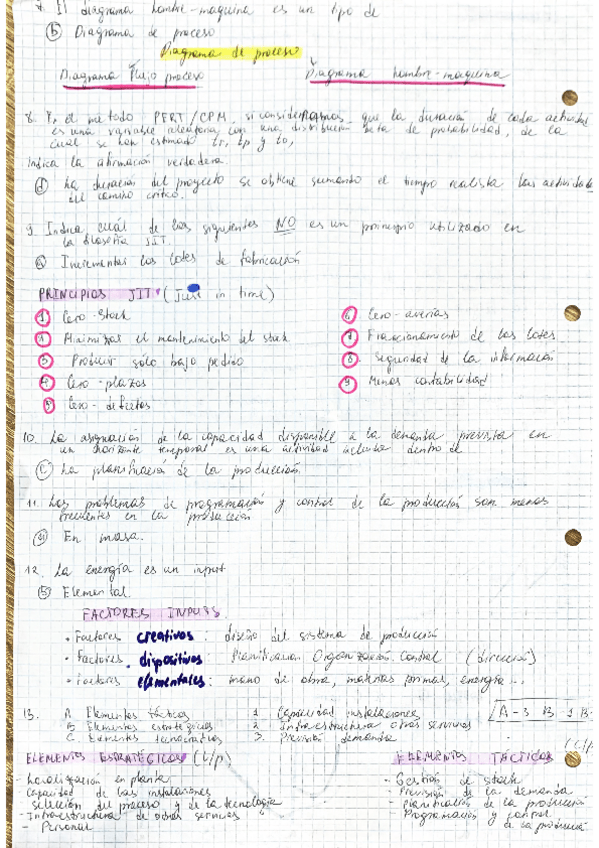 7. El diagrama hombre-maquina es un tipo de
(b) Diagrama de proceso
Diagrama de proceso
Diagrama Flujo proceso Diagrama hombre-maquina
8. En el método PERT/CPM, si consideramos, que la duración de cada actividad
es una variable aleatoria con una distribución beta de probabilidad, de la
cual se han estimado tr, tp y to,
Indica la afirmación verdadera.
(d) La duración del proyecto se obtiene sumando el tiempo realista las actividades
del camino crítico.
9. Indica cuál de los siguientes NO es un principio utilizado en
la filosofía JIT.
(a) Incrementar los lotes de fabricación
PRINCIPIOS JIT (Just in time)
1 Cero-Stock
Minimizar el mantenimiento del stock
3 Producir sólo bajo pedido
4 Cero-plazos
5 Cero-defectos
6 Cero-averías
7 Fraccionamiento de los lotes
8 Seguridad de la información
9 Menos contabilidad
10. La asignación de la capacidad disponible a la demanda prevista en
un horizonte temporal es una actividad incluida dentro de
(C) La planificación de la producción.
11. Los problemas de programación y control de la producción son menos
frecuentes en la producción
En masa.
12. La energía es un input
(b) Elemental
FACTORES INPUTS
• Factores creativos: diseño del sistema de producción
• Factores dispositivos: Planificación Organización Control (dirección)
• Factores elementales: mano de obra, materias primas, energía...
13. A. Elementos tácticos 1 Capacidad instalaciones A-3 B-1
B. Elementos estratégicos 2 Infraestructura otros servicios
C. Elementos 3. Previsión demanda
ELEMENTOS ESTRATÉGICOS (l/p) ELEMENTOS TÁCTICOS
- Localización en planta
- Capacidad de las instalaciones
selección del proceso y de la tecnología
- Infraestructura de otros servicios
- Personal
- Gestión de stock
- Previsión de la demanda
- Planificación de la producción
Programación y control
de la producción